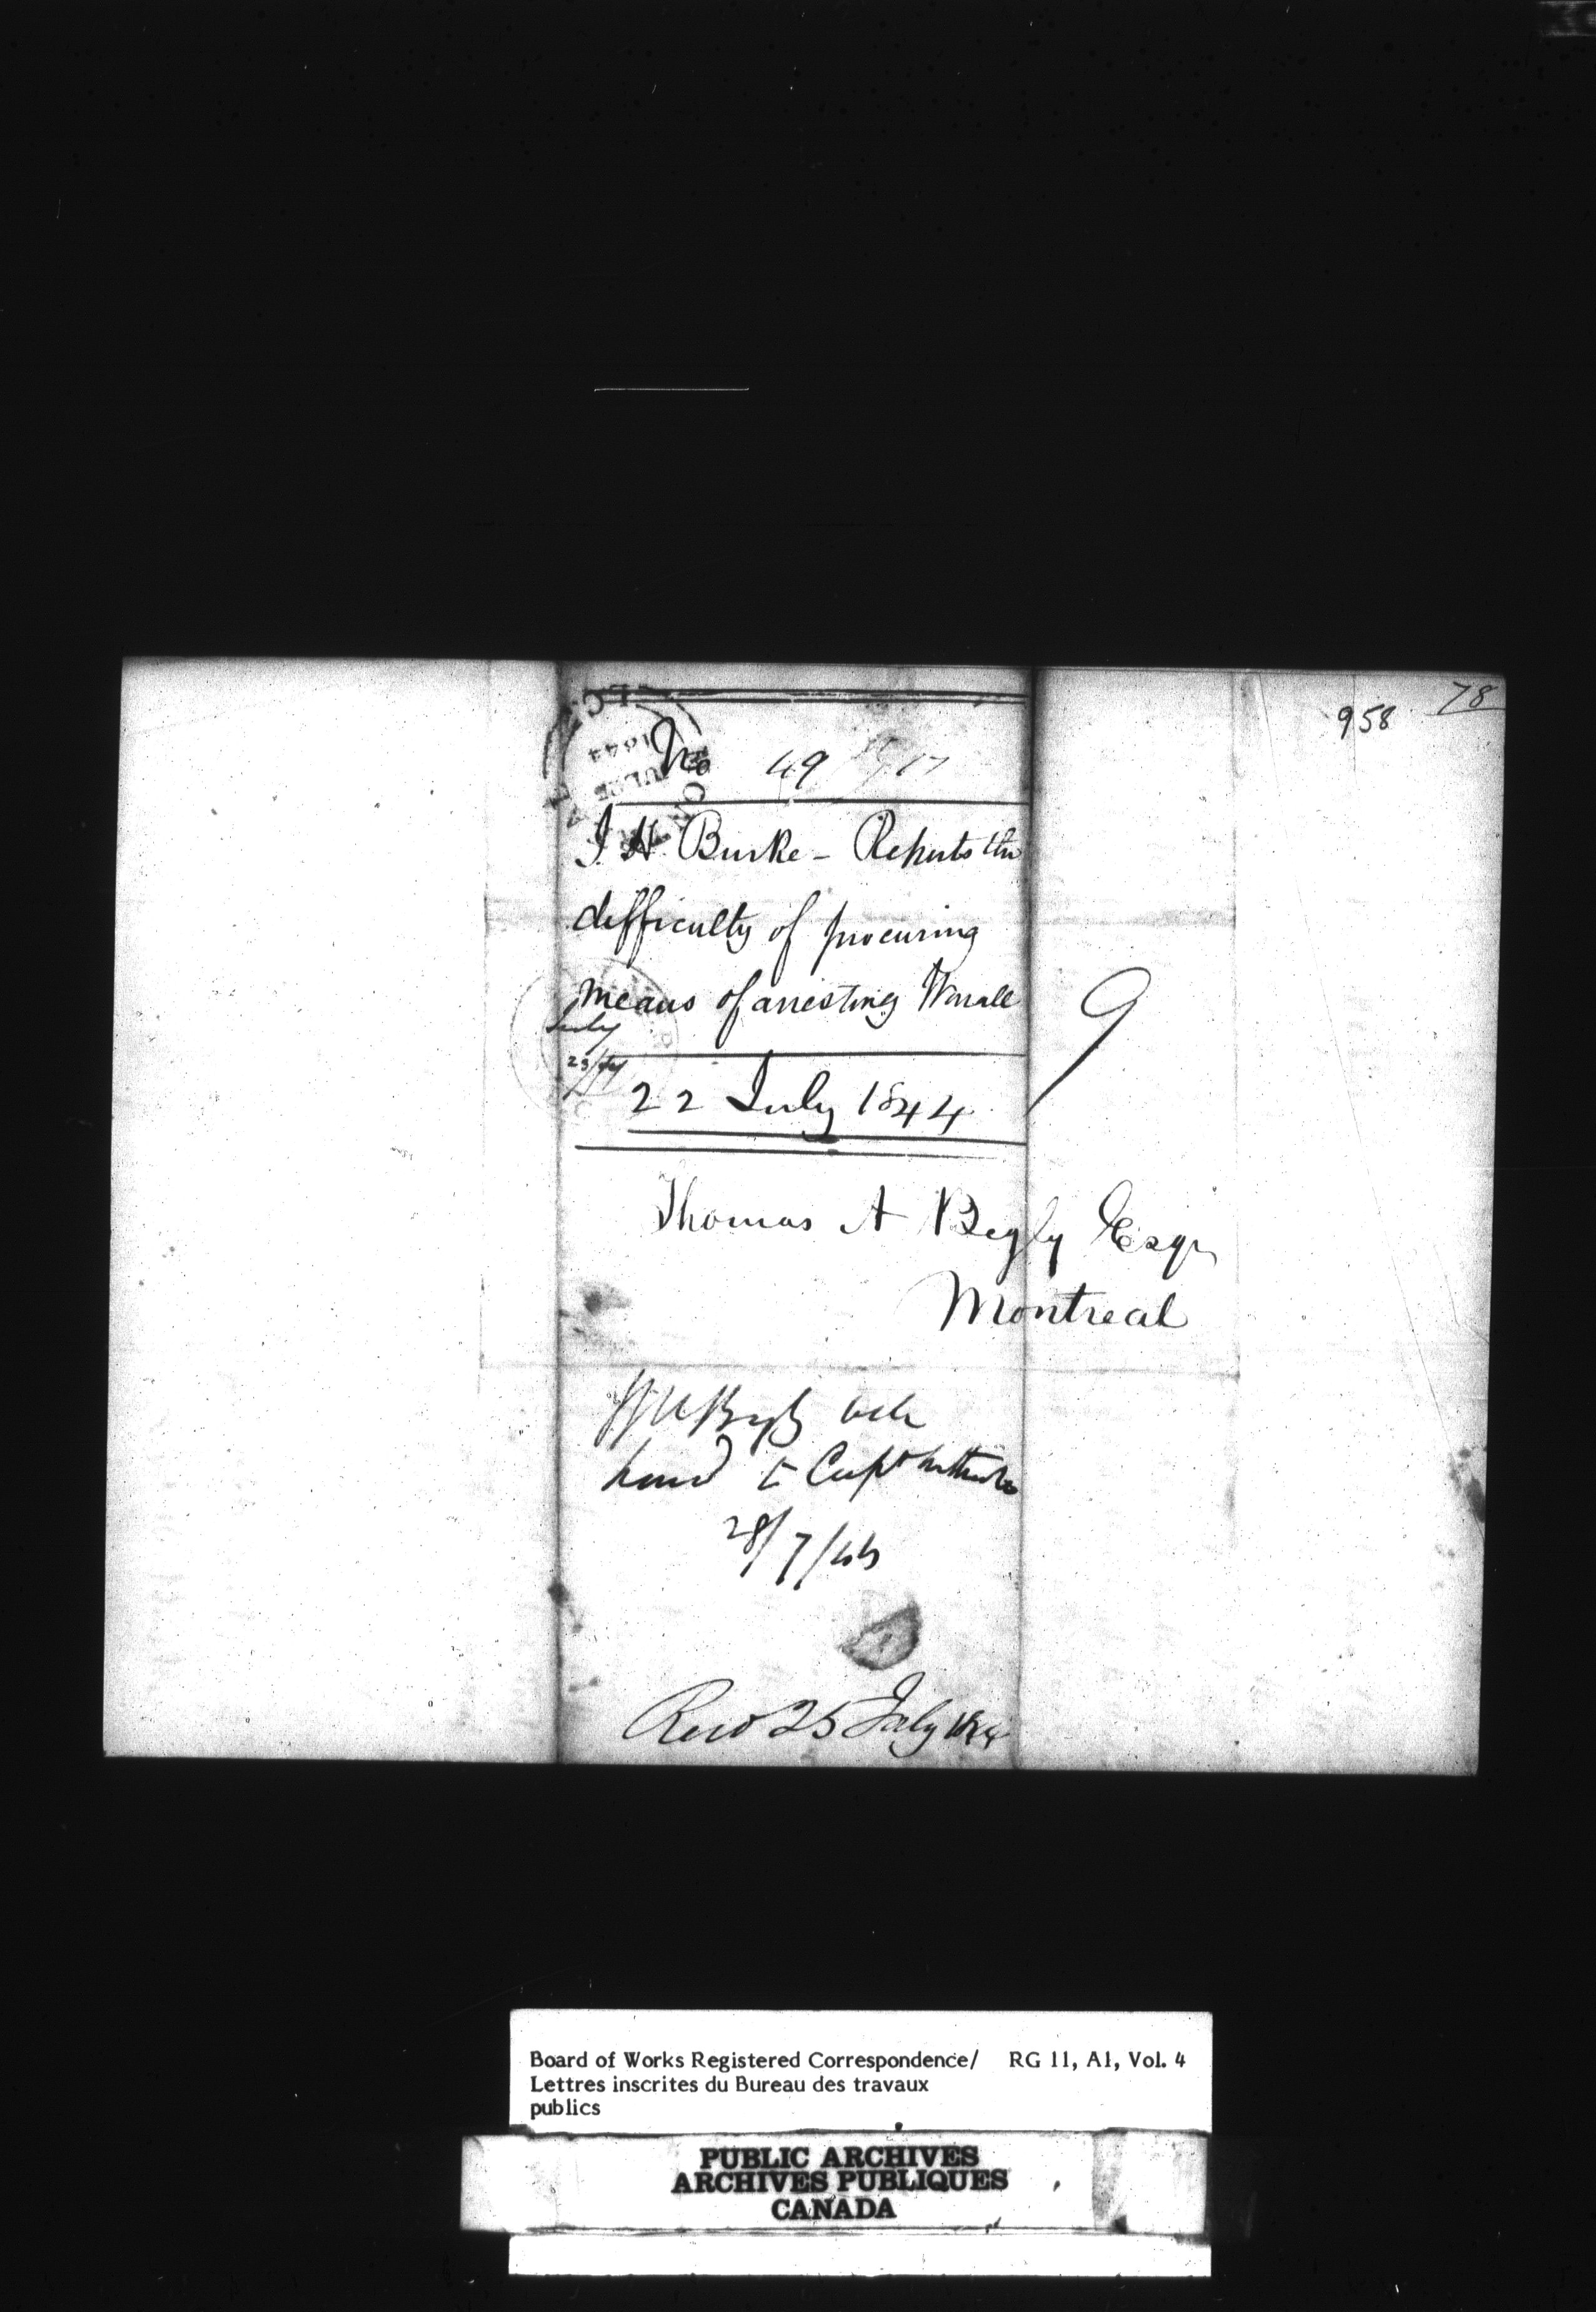 78
958
No 49
J. H. Burke - Reports the
difficulty of procuring
means of arresting
July
22 July 1844
9
Thomas A Begly Esqr
Montreal
to Capt
28/7/44
Recd 25 July 1844
Board of Works Registered Correspondence/ RG 11, A1, Vol. 4
Lettres inscrites du Bureau des travaux
publics
PUBLIC ARCHIVES
ARCHIVES PUBLIQUES
CANADA